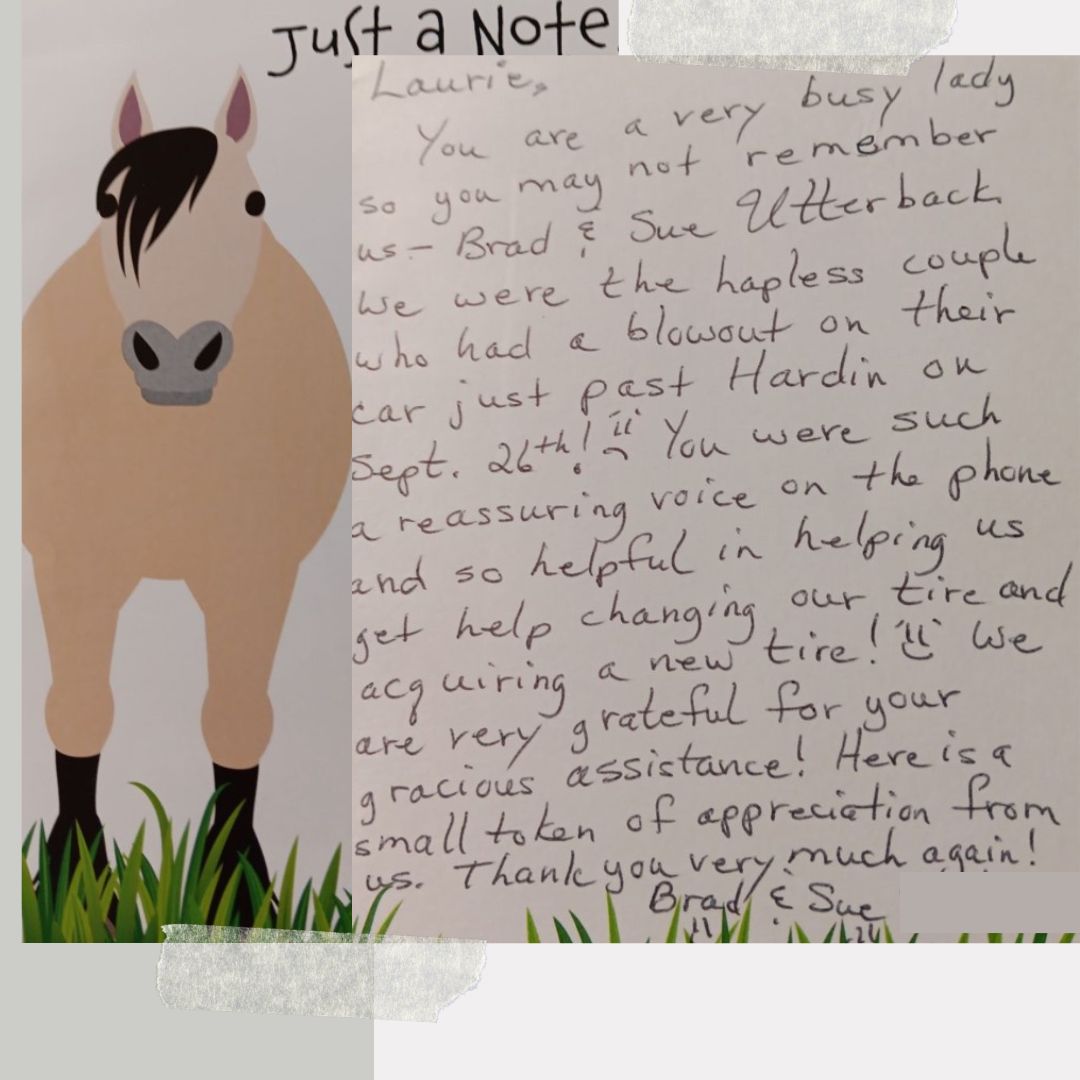 Just a Note
Laurie,
You are a very busy lady
so you may not remember
us - Brad & Sue Utterback
We were the hapless couple
who had a blowout on their
car just past Hardin on
Sept. 26th! You were such
a reassuring voice on the phone
and so helpful in helping us
get help changing our tire and
acquiring a new tire! We
are very grateful for your
gracious assistance! Here is a
small token of appreciation from
us. Thank you very much again!
Brad & Sue